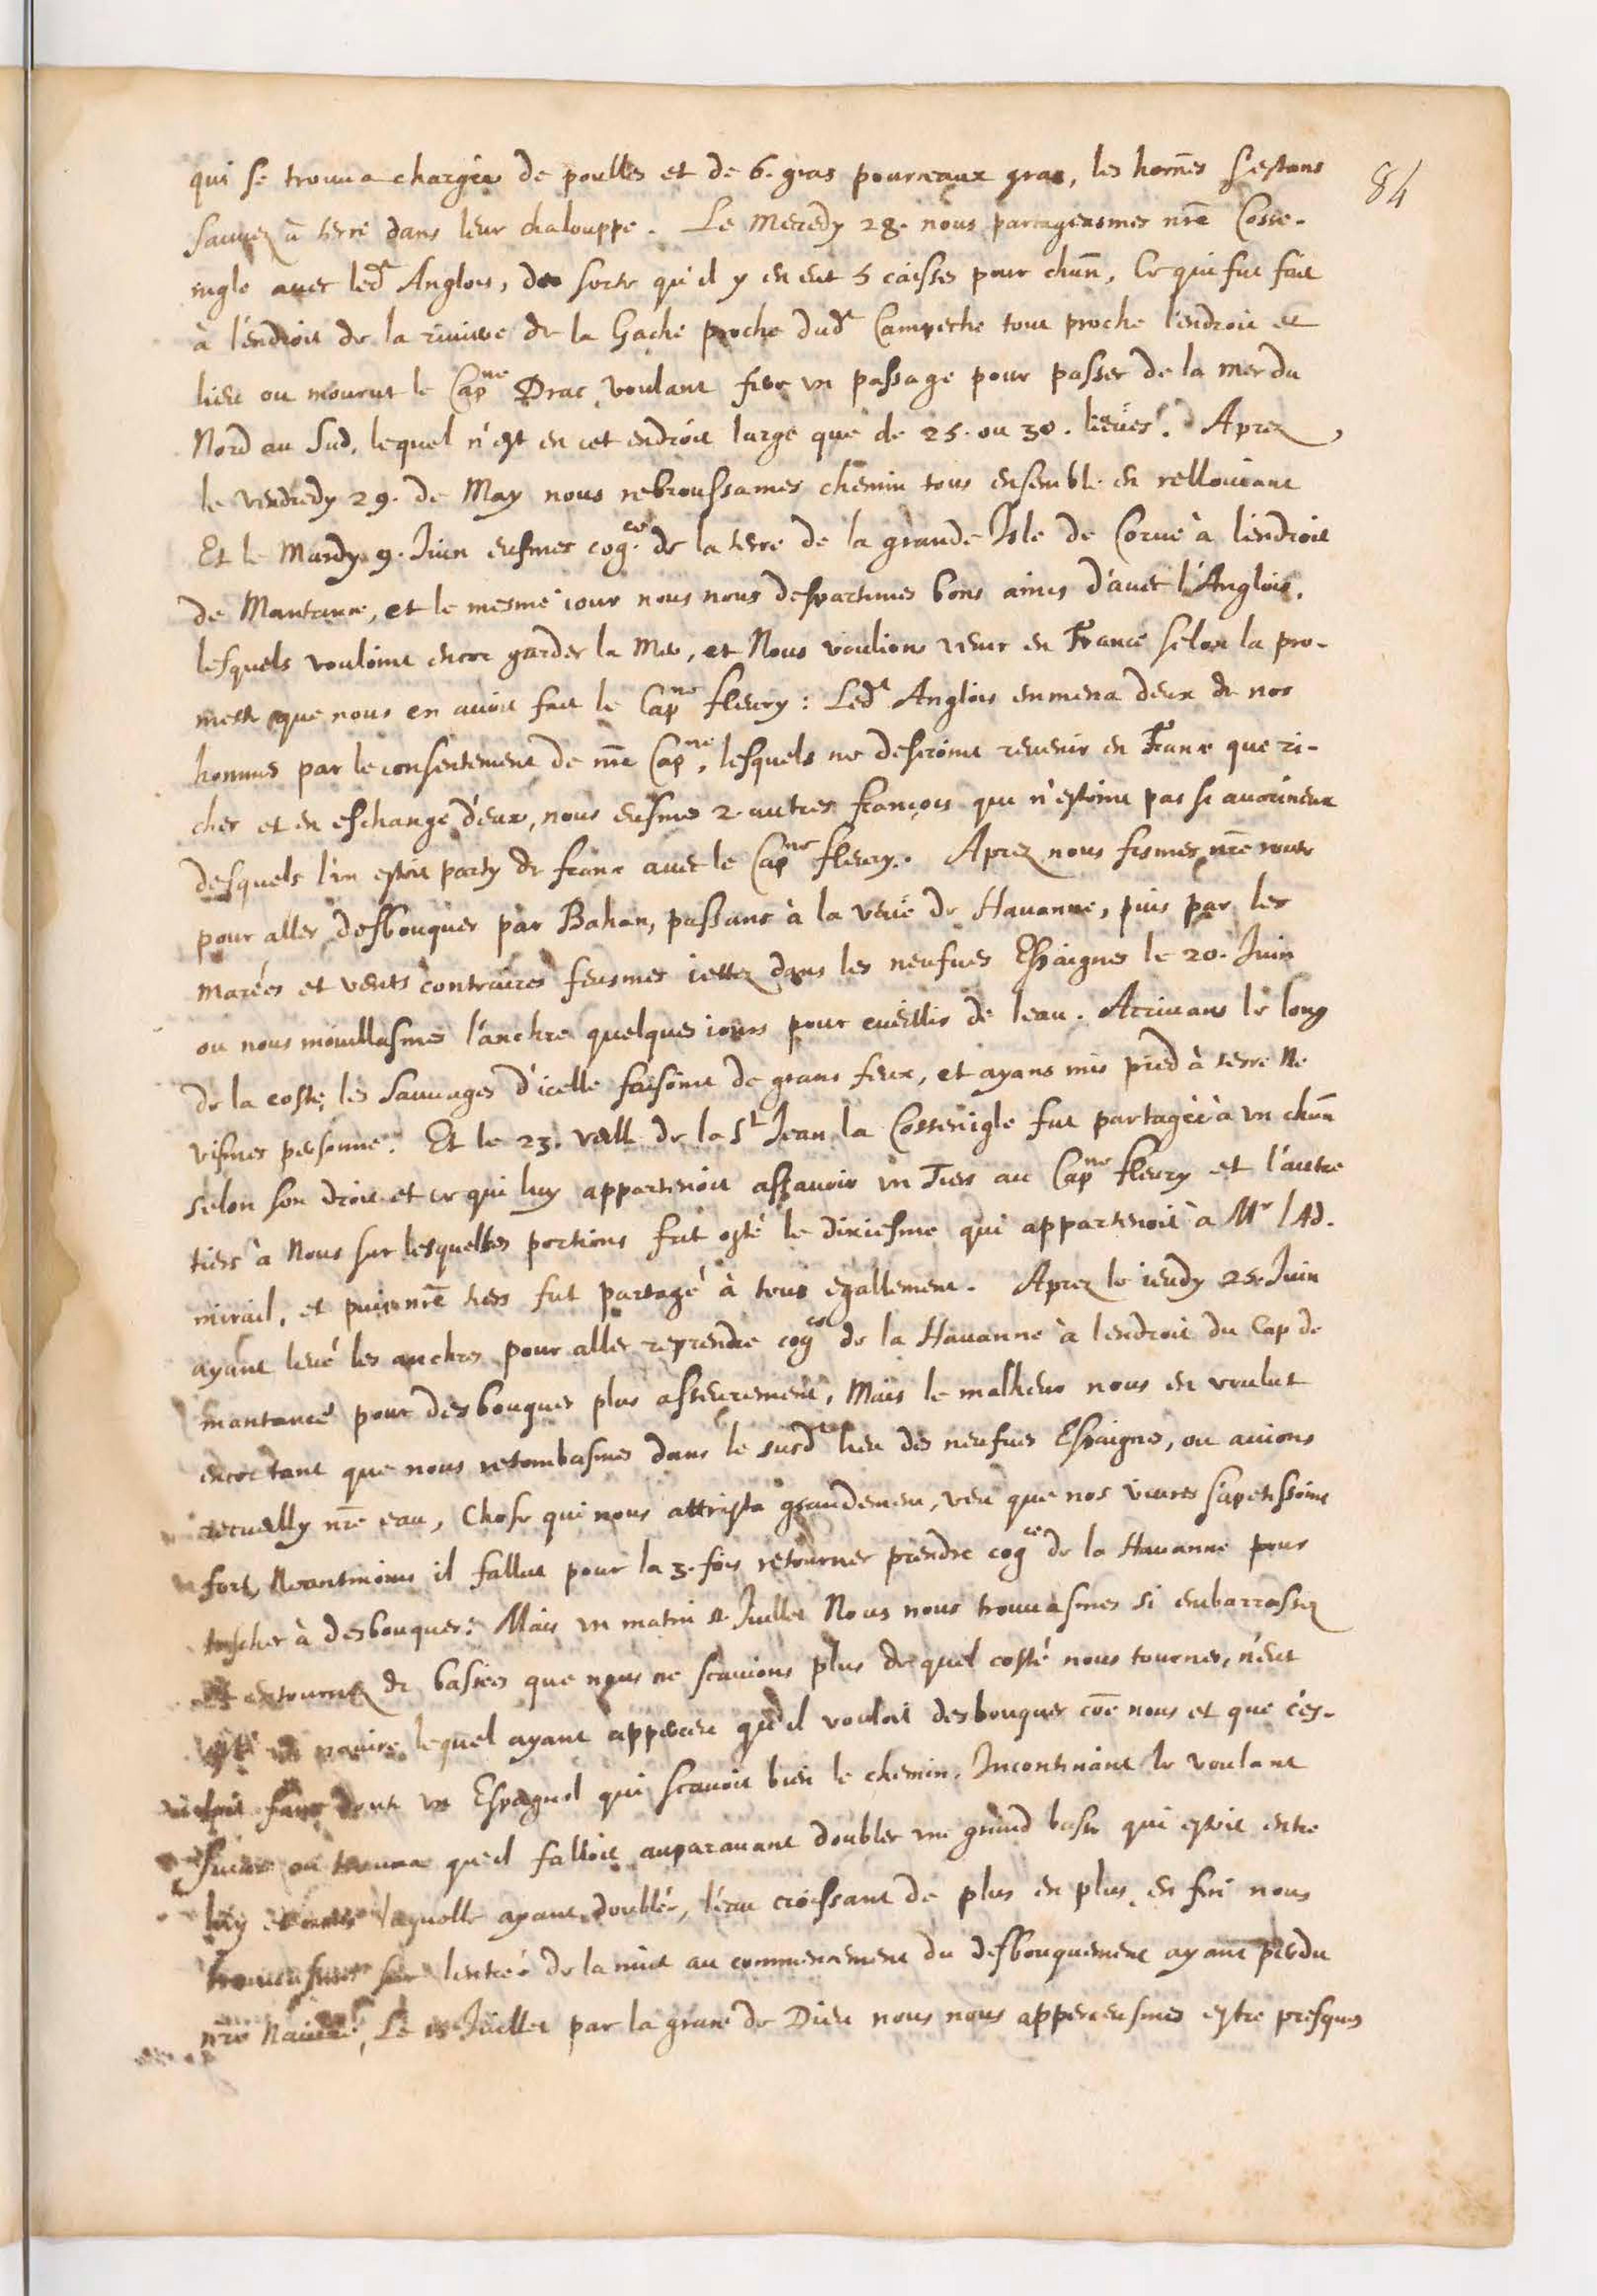 84
qui se trouva chargée de poulles et de 6. gras pourceaux gras, les hom̃es s'estans
sauvez à terre dans leur chalouppe. Le Mecredy 28. nous partageasmes nr̃e Cosse-
nigle avec led.t Anglois, de sorte qu'il y en eut 5 caisses pour chun̄, Ce qui fut fait
à l'endroit de la riviere de la Hache proche dud.t Campeche tout proche l'endroit et
lieu ou mourut le Cap.ne Drac, voulant fere un passage pour passer de la mer du
Nord au Sud, lequel n'est en cet endroit large que de 25. ou 30. lieües. Aprez,
le vendredy 29. de May nous rebroussames chemin tous ensemble en rellouiant
Et le Mardy 9. Juin eusmes cog.ce de la terre de la grande Isle de Corue à l'endroit
de Mantance, et le mesme iour nous nous despartimes bons amis d'avec l'Anglois,
lesquels vouloint encor garder la Mer, et Nous voulions venir en France selon la pro-
messe que nous en avoit fait le Cap.ne fleury: Led.t Anglois enmena deux de nos
hommes par le consentement de nr̃e Cap.ne, lesquels ne desiroint revenir en France que ri-
ches et en eschange d'eux, nous eusmes 2. autres françois qui n'estoint pas si avaricieux
desquels l'un estoit party de france avec le Cap.ne fleury. Aprez nous fismes nr̃e route
pour aller desbouquer par Bahan, passans à la veüe de Havanne, puis par les
marées et vents contraires feusmes iettez dans les neufves Espaignes le 20. Juin
ou nous mouillasmes l'anchre quelques iours pour cueillir de leau. Arrivans le long
de la coste, les Sauvages d'icelle faisoint de grans feux, et ayans mis pied à terre Ne
vismes personne. Et le 23. veille de la S.t Jean la Cossenigle fut partagée à un chun̄
selon son droit et ce qui luy appartenoit assavoir un Tiers au Cap.ne fleury et l'autre
tiers à Nous sur lesquelles portions fut osté le dixiesme qui appartenoit à Mr l'Ad-
mirail, et puis nr̃e tiers fut partagé à tous egallement. Aprez le ieudy 25. Juin
ayant levé les anchres pour aller reprendre cog.ce de la Havanne à lendroit du Cap de
mantance pour desbouquer plus asseurement, Mais le malheur nous en voulut
encor tant que nous retombasmes dans le susd. lieu des neufves Espaignes, ou avions
recueilly nr̃e eau, Chose qui nous attrista grandement, veu que nos vivres s'apetissoint
fort, Neantmoins il fallut pour la 3. fois retourner prendre cog.ce de la Havanne pour
tascher à desbouquer: Mais un matin Juillet Nous nous trouvasmes si embarrassez
et entournez de basses que nous ne scavions plus de quel costé nous tourner, n'eut
esté un navire lequel ayant apperceu qu'il vouloit desbouquer cõe nous et que c'es-
toit sans doute un Espagnol qui scavoit bien le chemin. Incontinant le voulant
suivre on trouva qu'il falloit auparavant doubler une grand basse qui estoit entre
luy et nous laquelle ayant doublée, l'eau croissant de plus en plus, en fin nous
trouvasmes sur lentrée de la nuit au commencement du desbouquement ayant perdu
nr̃e Navire, Le 15 Juillet par la grace de Dieu nous nous apperceusmes estre presques